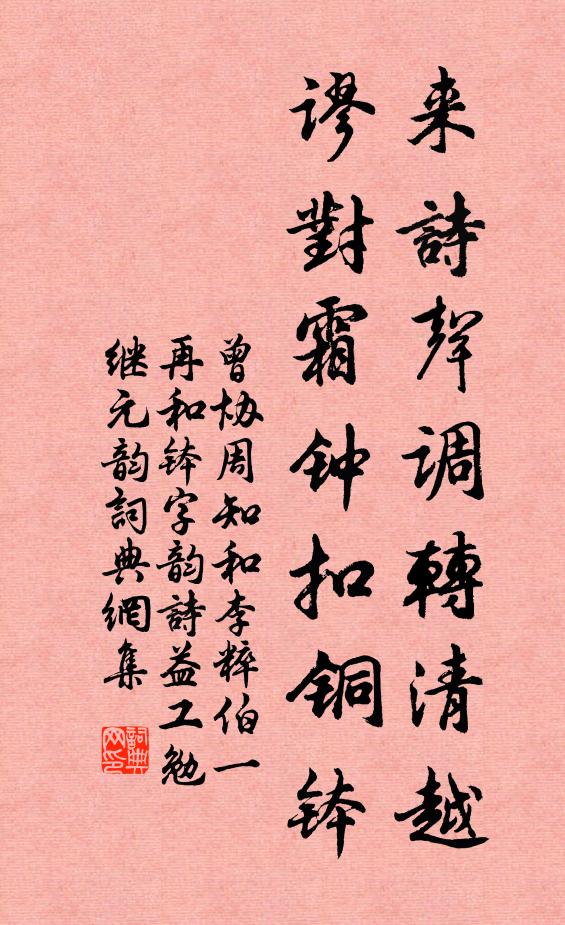 来詩聲調轉清越
谬對霜钟扣铜钵
曾协周知和李粹伯一
再和钵字韵詩益工勉
继元韵詞典網集
詞典网印